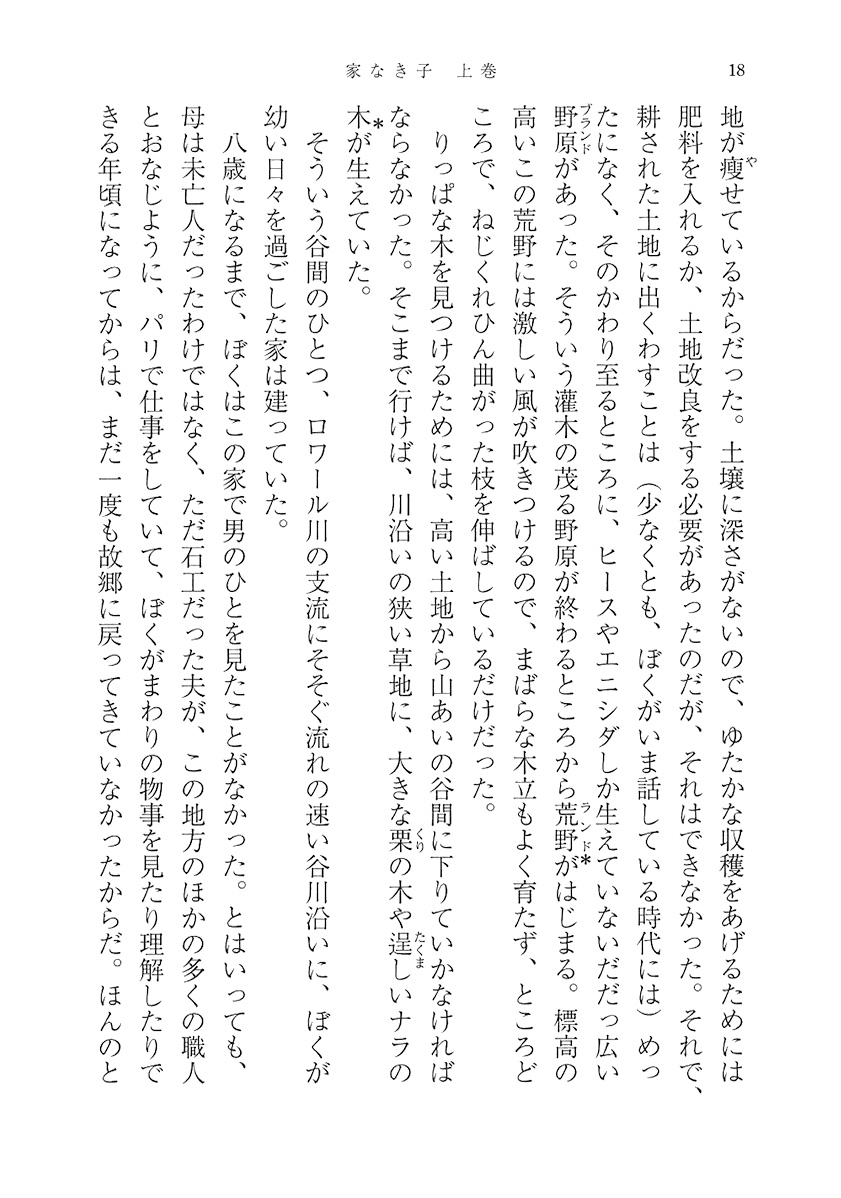 家なき子　上巻
18
地が瘦せているからだった。土壌に深さがないので、ゆたかな収穫をあげるためには
肥料を入れるか、土地改良をする必要があったのだが、それはできなかった。それで、
耕された土地に出くわすことは（少なくとも、ぼくがいま話している時代には）めっ
たになく、そのかわり至るところに、ヒースやエニシダしか生えていないだだっ広い
野原があった。そういう灌木の茂る野原が終わるところから荒野*がはじまる。標高の
高いこの荒野には激しい風が吹きつけるので、まばらな木立もよく育たず、ところど
ころで、ねじくれひん曲がった枝を伸ばしているだけだった。
りっぱな木を見つけるためには、高い土地から山あいの谷間に下りていかなければ
ならなかった。そこまで行けば、川沿いの狭い草地に、大きな栗の木や逞しいナラの
木*が生えていた。
そういう谷間のひとつ、ロワール川の支流にそそぐ流れの速い谷川沿いに、ぼくが
幼い日々を過ごした家は建っていた。
八歳になるまで、ぼくはこの家で男のひとを見たことがなかった。とはいっても、
母は未亡人だったわけではなく、ただ石工だった夫が、この地方のほかの多くの職人
とおなじように、パリで仕事をしていて、ぼくがまわりの物事を見たり理解したりで
きる年頃になってからは、まだ一度も故郷に戻ってきていなかったからだ。ほんのと
や
ブランド
ランド
くり
たくま